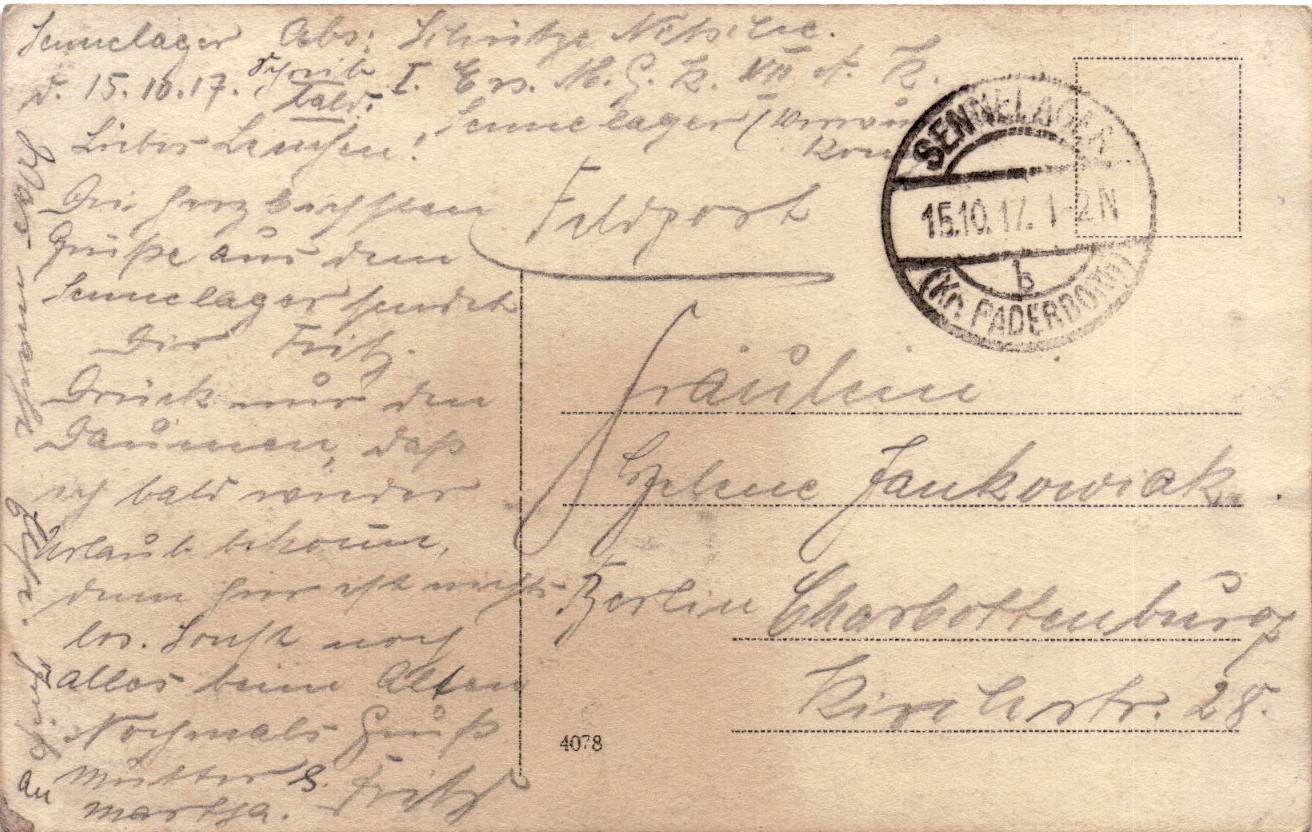 Sennelager Abs: Schütze
d. 15.10.17. I. Ers. M. G. K. VII A. K.
Schreib bald.
Sennelager
Liebes Lenchen!
Feldpost
Die herzlichsten
Grüße aus dem
Sennelager sendet
Dir Fritz.
Drück nur den
Daumen, daß
ich bald wieder
Urlaub bekomme,
denn hier ist nichts
los. Sonst noch
alles beim Alten
Nochmals Gruß
Fritz
Gruß
an Mutter &
Martha.
SENNELAGER
15.10.17. 1-2N
b
(Kr. PADERBORN)
Fräulein
Helene Jankowiak
Berlin Charlottenburg
Kirchstr. 28.
4078